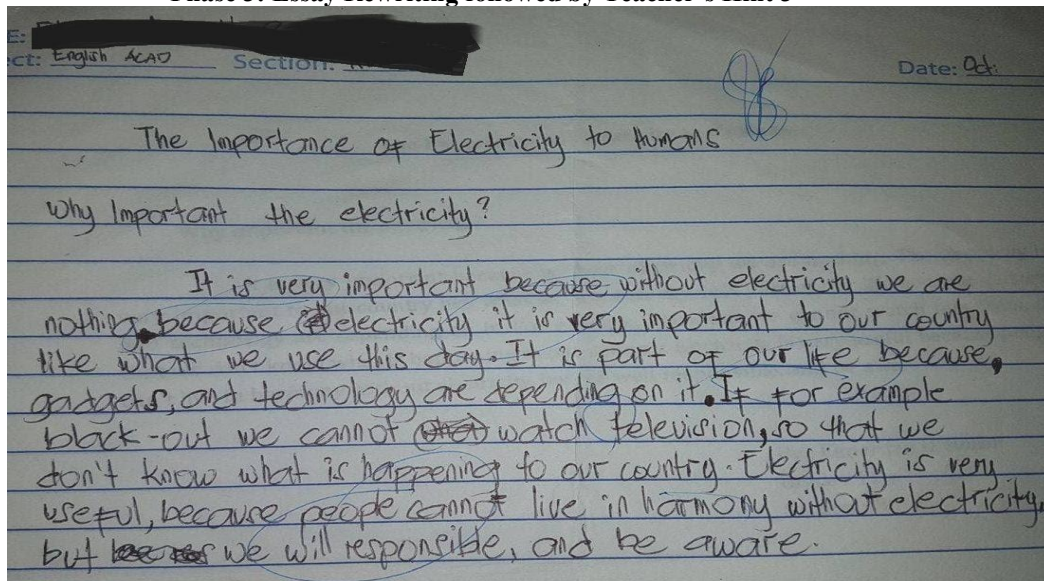 Phase 3: Essay Rewriting followed by Teacher's Hint 3
E:
ect: English ACAD Section: Date: Oct.
The Importance of Electricity to Humans
Why Important the electricity?
It is very important because without electricity we are
nothing. because electricity it is very important to our country
like what we use this day. It is part of our life because,
gadgets, and technology are depending on it. If for example
black-out we cannot watch television, so that we
don't know what is happening to our country. Electricity is very
useful, because people cannot live in harmony without electricity,
but we will responsible, and be aware.